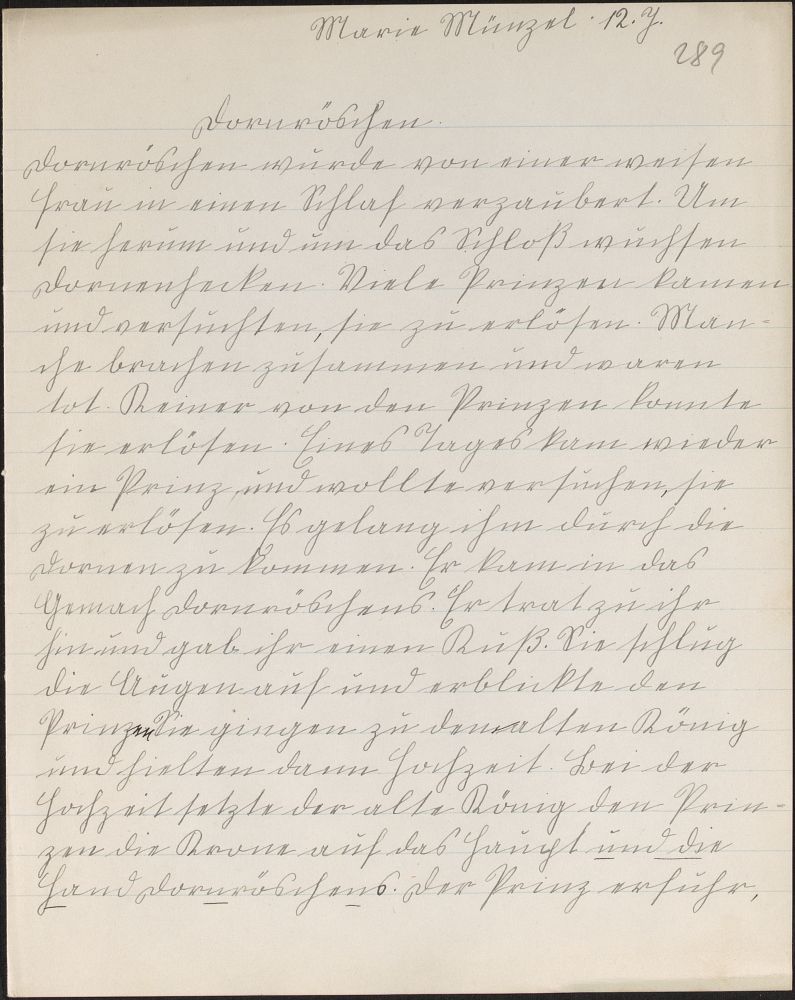 Marie Münzel. 12. J.
289
Dornröschen.
Dornröschen wurde von einer weisen
Frau in einen Schlaf verzaubert. Um
sie herum und um das Schloß wuchsen
Dornenhecken. Viele Prinzen kamen
und versuchten, sie zu erlösen. Man-
che brachen zusammen und waren
tot. Keiner von den Prinzen konnte
sie erlösen. Eines Tages kam wieder
ein Prinz und wollte versuchen, sie
zu erlösen. Es gelang ihm durch die
Dornen zu kommen. Er kam in das
Gemach Dornröschens. Er trat zu ihr
hin und gab ihr einen Kuß. Sie schlug
die Augen auf und erblickte den
Prinzen Sie gingen zu dem alten König
und hielten dann Hochzeit. Bei der
Hochzeit setzte der alte König den Prin-
zen die Krone auf das Haupt und die
Hand Dornröschens. Der Prinz erfuhr,